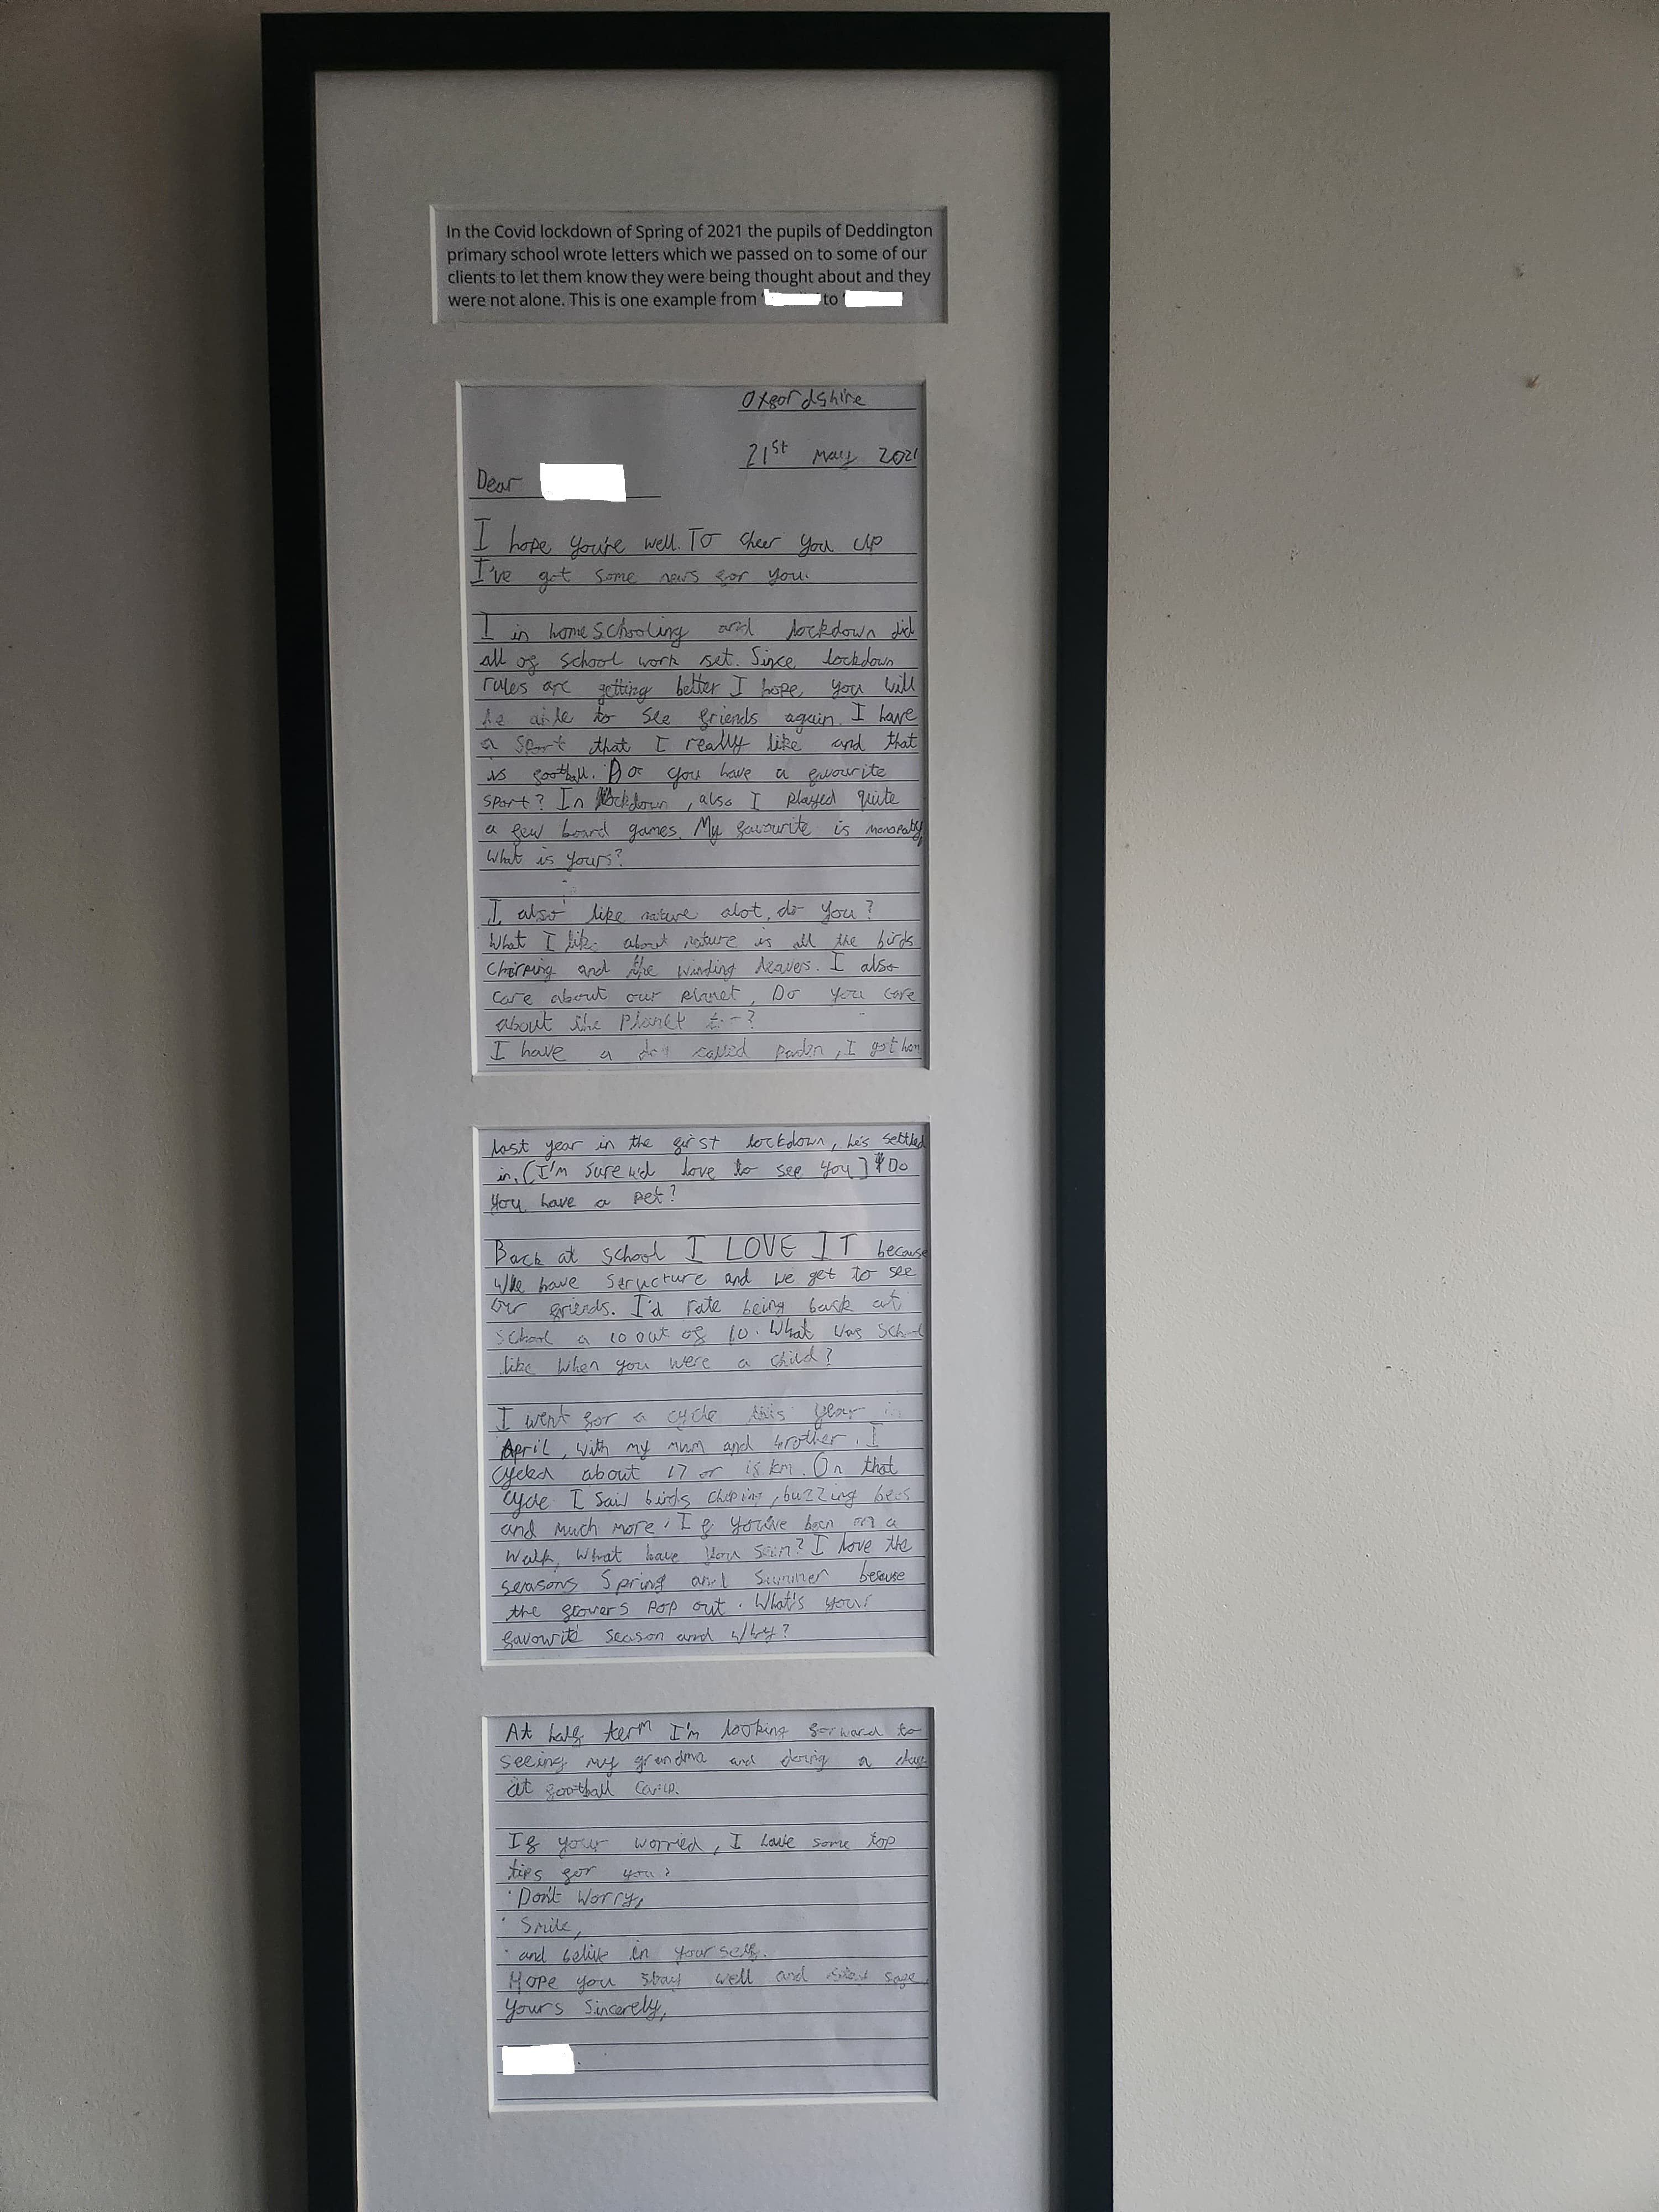 In the Covid lockdown of Spring of 2021 the pupils of Deddington
primary school wrote letters which we passed on to some of our
clients to let them know they were being thought about and they
were not alone. This is one example from ' to '
Oxfordshire
21st May 2021
Dear
I hope you're well. To cheer you up
I've got some news for you.
I in homeschooling and lockdown did
all of school work set. Since lockdown
rules are getting better I hope, you will
be able to see friends again. I have
a sport that I really like and that
is football. Do you have a favourite
sport? In lockdown, also I played quite
a few board games. My favourite is
What is yours?
I also like nature alot, do you?
What I like about nature is all the birds
chirping and the winding leaves. I also
care about our planet, Do you care
about the planet ?
I have a dog called , I got him
last year in the first lockdown, he's settled
in. (I'm sure love to see you) Do
you have a pet?
Back at school I LOVE IT because
We have structure and we get to see
our friends. I'd rate being back at
school a 10 out of 10. What was school
like when you were a child?
I went for a cycle this year in
April, with my mum and brother. I
cycled about 17 or 18 km. On that
cycle I birds , buzzing bees
and much more. If you've been on a
walk, what have you seen? I love the
seasons Spring and Summer because
the flowers pop out. What's your
favourite season and why?
At half term I'm looking forward to
seeing my grandma and doing a day
at football camp.
If your worried, I have some top
tips for you:
· Don't worry,
· Smile,
· and belive in your self.
Hope you stay well and stay safe
Yours Sincerely,